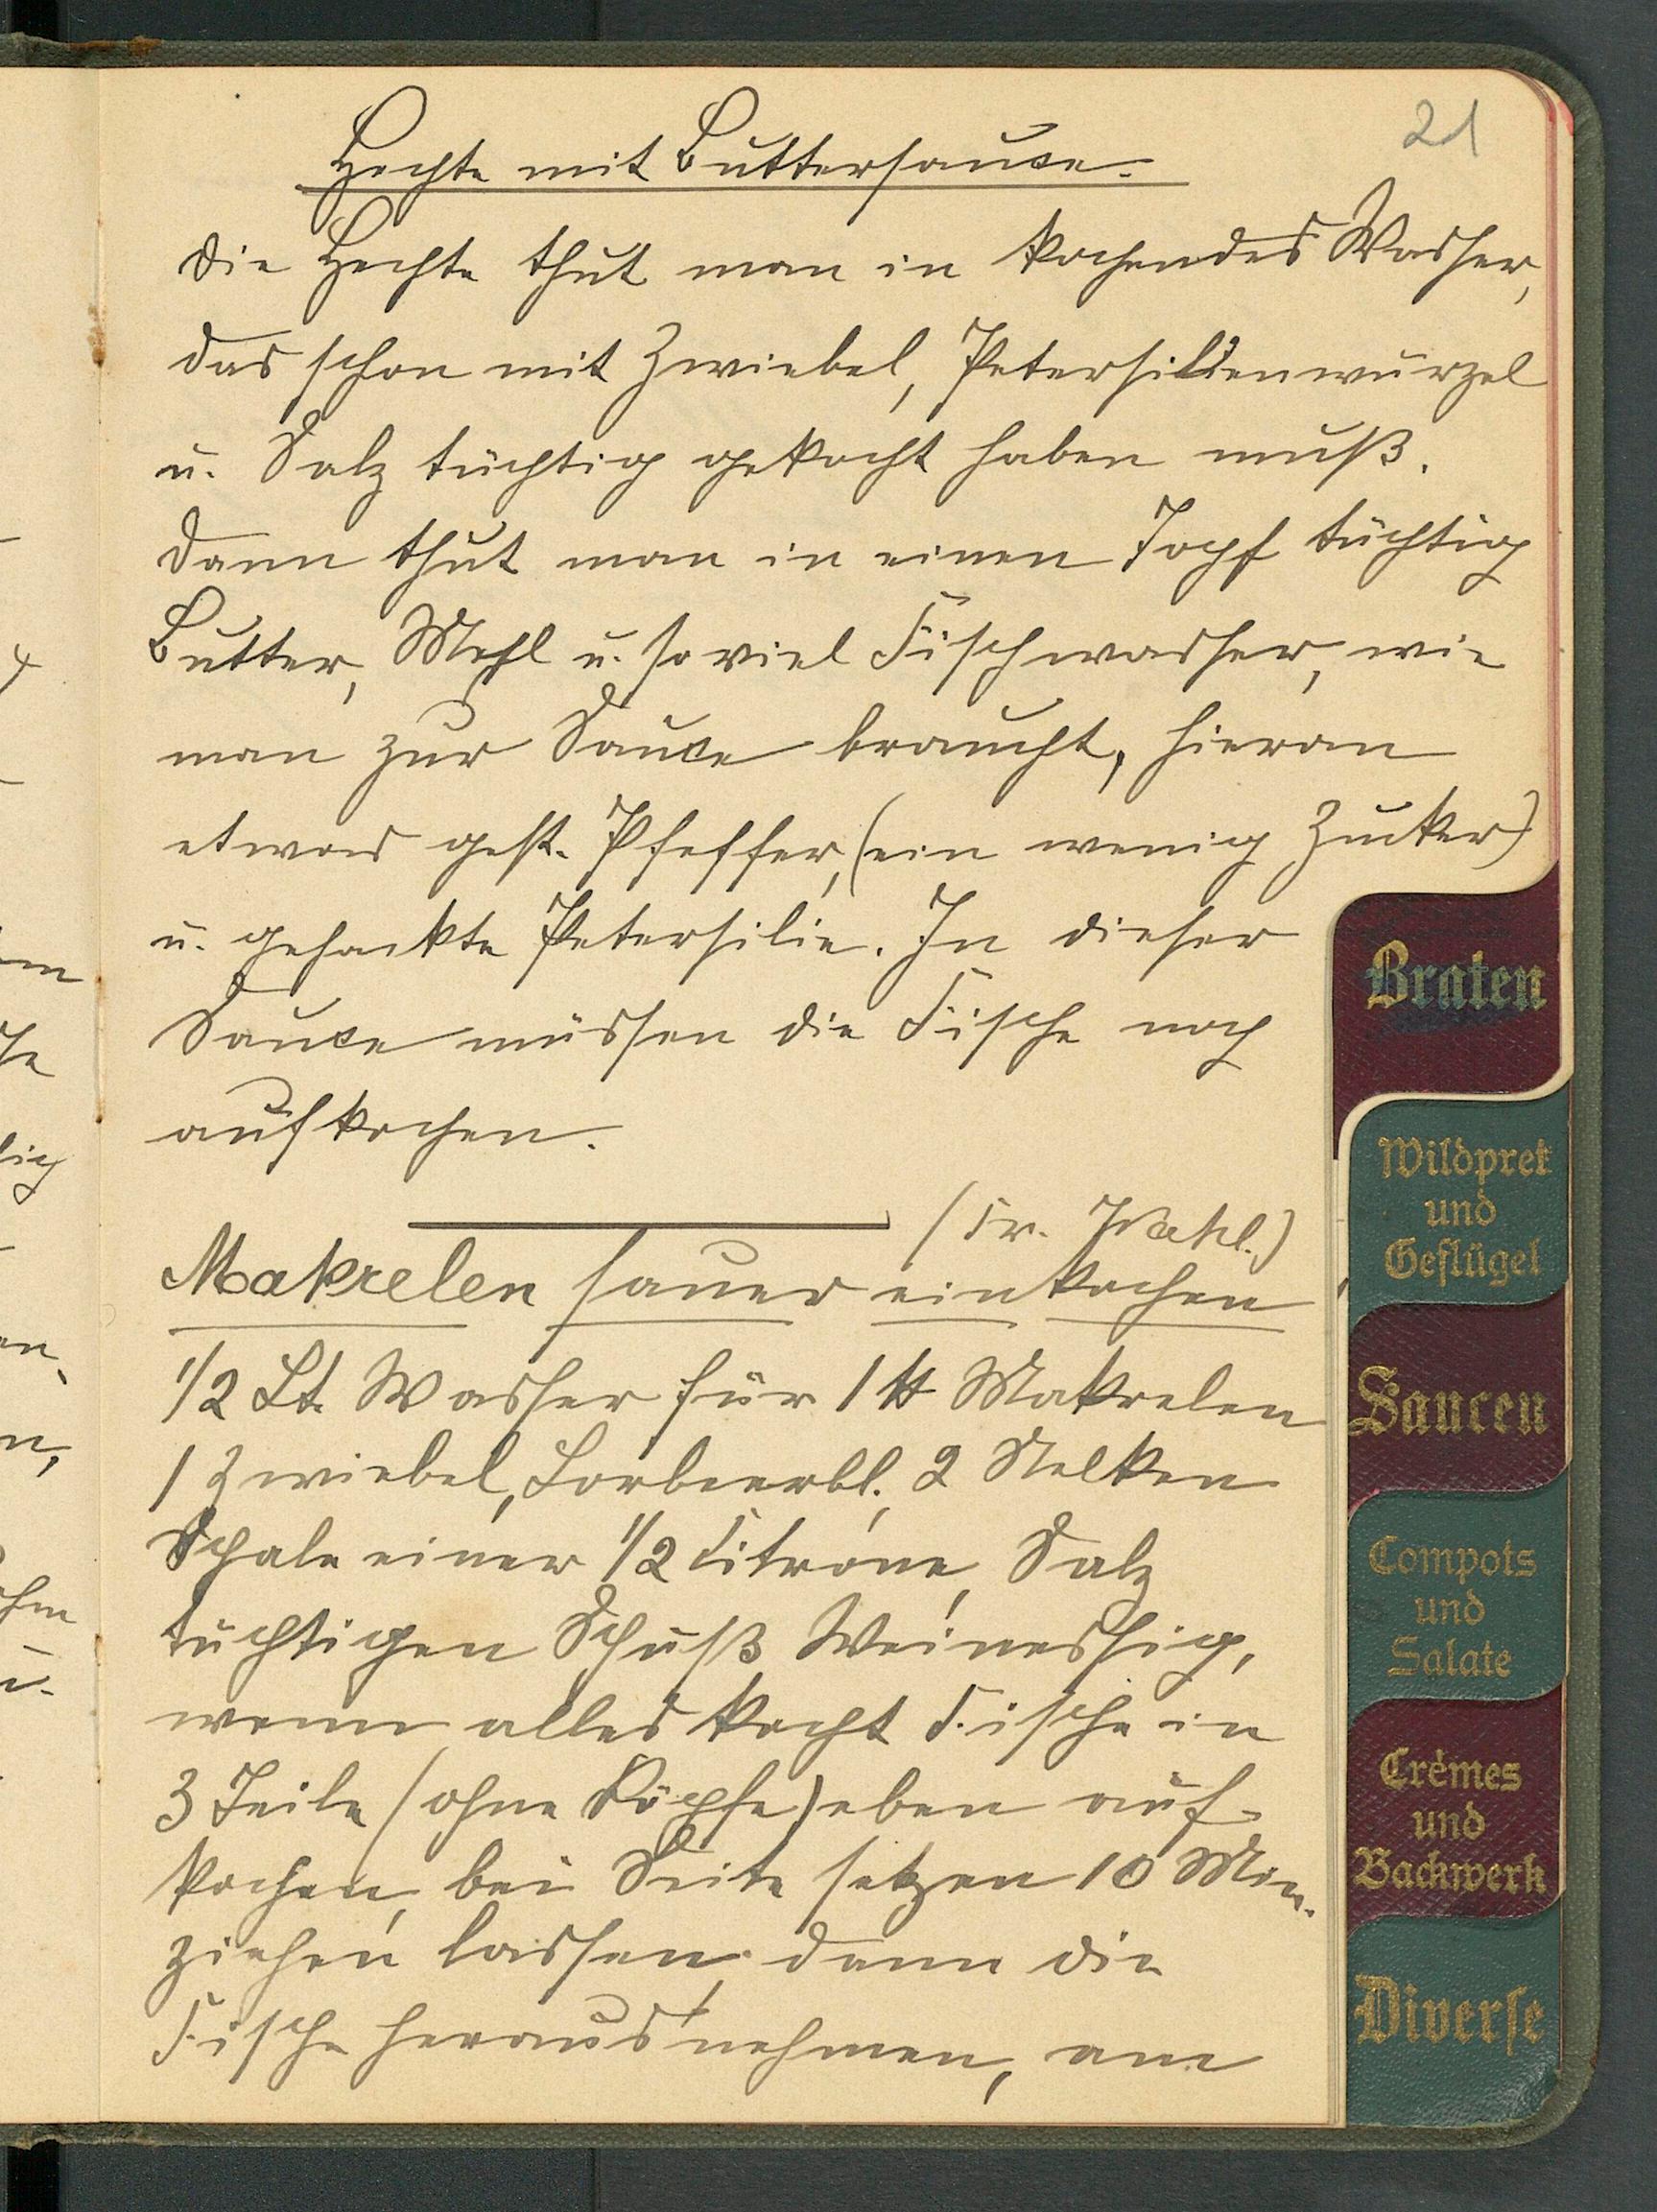 21
Hechte mit Buttersauce.
Die Hechte thut man in kochendes Wasser,
das schon mit Zwiebel, Petersilienwurzel
u. Salz tüchtig gekocht haben muß.
Dann thut man in einen Topf tüchtig
Butter, Mehl u. so viel Fischwasser, wie
man zur Sauce braucht, hieran
etwas gest. Pfeffer, (ein wenig Zucker)
u. gehackte Petersilie. In dieser
Sauce müssen die Fische noch
aufkochen.
(Fr.
Makrelen sauer einkochen
1/2 Lt. Wasser für 1 ℔ Makrelen
1 Zwiebel, Lorbeerbl. 2 Nelken
Schale einer 1/2 Citrone, Salz
tüchtigen Schuß Weinessig,
wenn alles kocht Fische in
3 Teile (ohne Köpfe) eben auf-
kochen, bei Seite setzen 10 Min.
ziehen lassen, dann die
Fische herausnehmen, am
Braten
Wildpret
und
Geflügel
Saucen
Compots
und
Salate
Crèmes
und
Backwerk
Diverse